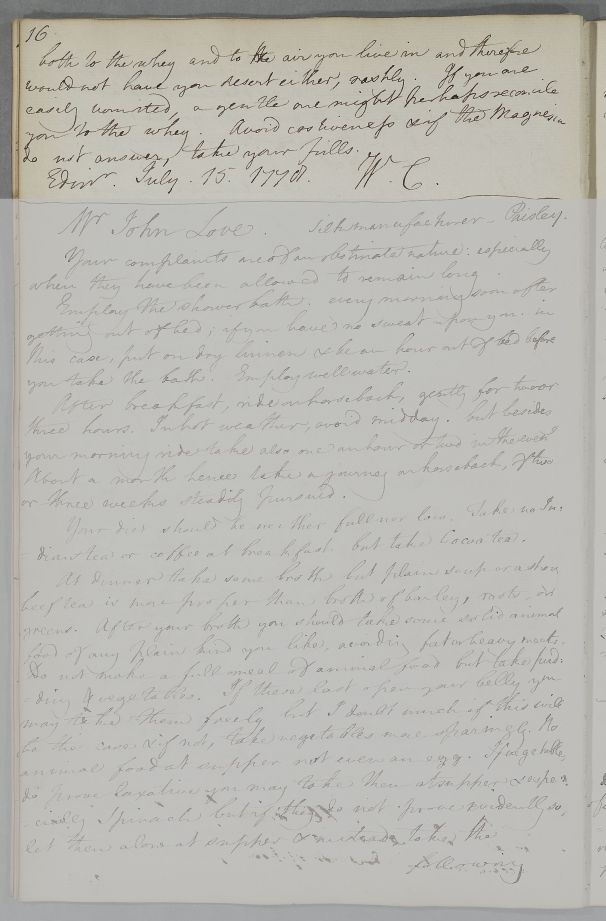 16
both to the whey and to the air you live in and therefore
would not have you desert either, rashly. If you are
easily vomited, a gentle one might perhaps reconcile
you to the whey. Avoid costiveness & if the Magnesia
do not answer, take your pills.
Edinr. July. 15. 1778. W. C.
Mr John Love. Silk manufacturer - Paisley.
Your complaints are of an obstinate nature: especially
when they have been allowed to remain long.
Employ the shower bath. every morning soon after
getting out of bed; if you have no sweat upon you. in
this case, put on dry linnen & be an hour out of bed before
you take the bath. Employ well water.
After breakfast, ride on horseback, gently for two or
three hours. In hot weather, avoid midday. but besides
your morning ride take also one an hour or two in the even?
About a month hence take a journey on horseback, of two
or three weeks steadily pursued.
Your diet should be neither full nor low. Take no In:
dian tea or coffee at breakfast. but take Cocoa tea.
At dinner take some broth but plain soup or a thin
beef tea is more proper than broth of barley, roots, or
greens. After your broth you should take some solid animal
food of any plain kind you like, avoiding fat or heavy meats.
Do not make a full meal of animal food but take pud:
ding & vegetables. If these last open your belly, you
may take them freely but I doubt much if this will
be the case & if not, take vegetables more sparingly. No
animal food at supper not even an egg. If vegetables
do prove laxative you may take them at supper &
Spinach but if they do not prove evidently so,
let them alone at supper & instead take the
following